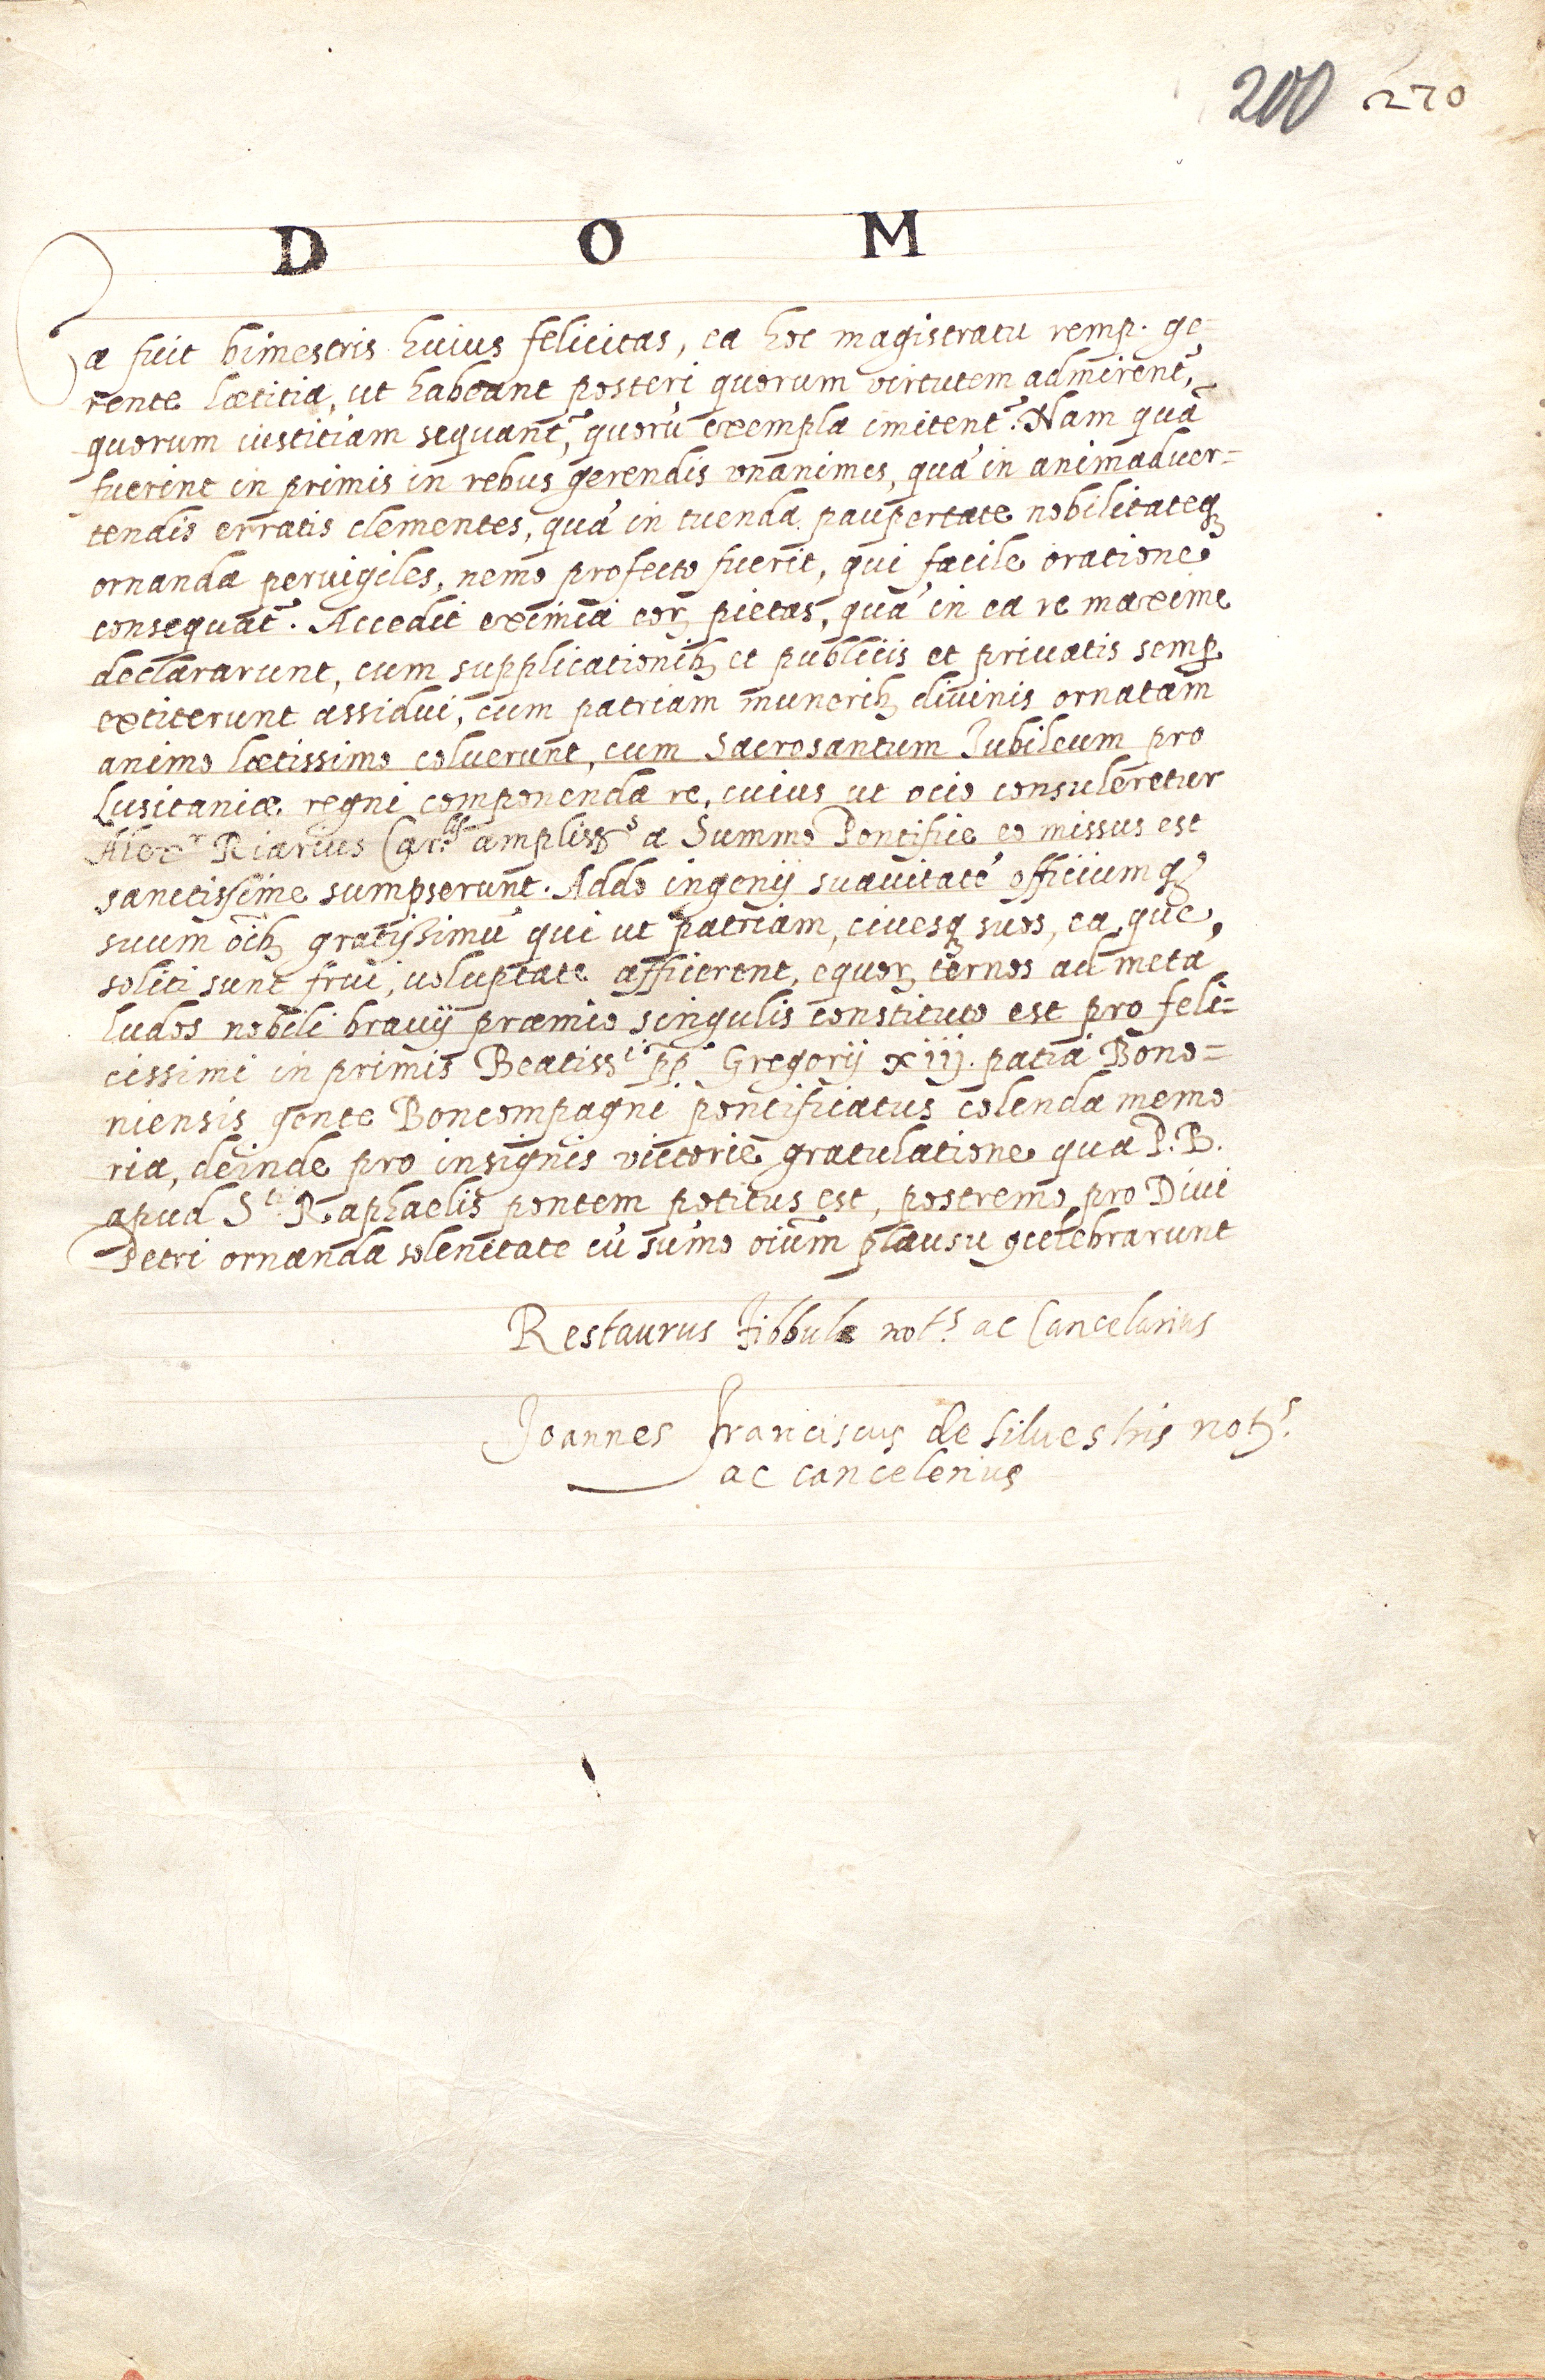 200 270
D O M
Ea fuit bimestris huius felicitas, ea hoc magistratu remp. ge-
rente lætitia, ut habeant posteri quorum virtutem admirent̃,
quorum iustitiam sequant̃, quorũ exempla imitent̃. Nam quã
fuerint in primis in rebus gerendis vnanimes, quã in animaduer=
tendis erratis clementes, quã in tuenda paupertate nobilitateq́ꝫ
ornanda peruigiles, nemo profecto fuerit, qui facile oratione
consequat̃. Accedit eximia eoꝝ pietas, quã in ea re maxime
declararunt, cum supplicationibꝫ et publicis et priuatis semꝑ
extiterunt assidui, cum patriam muneribꝫ diuinis ornatam
animo lætissimo coluerunt, cum Sacrosantum Iubileum pro
Lusitaniæ regni componenda re, cuius ut ocio consuleretur
Alexr Riarius Car.lis ampliss.s a Summo Pontifice eo missus est
sanctissime sumpserunt. Addo ingenij suauitatẽ officiumqꝫ
suum oĩbꝫ gratissimũ qui ut patriam, ciuesqꝫ suos, ea, que,
soliti sunt frui, uoluptate afficerent, equoꝝ ternos ad metã
ludos nobili brauij præmio singulis constituto est pro feli=
cissimi in primis Beatiss.i pp̃ Gregorij xiij. patria Bono=
niensis gente Boncompagni pontificatus colenda memo
ria, deinde pro insignis victorie gratulatione qua P. B.
apud S.ti Raphaelis pontem potitus est, postremo pro Diui
Petri ornanda solenitate cũ sũmo oĩum plausu ꝯcelebrarunt
Restaurus Fibbula not.s ac Cancelarius
Joannes Franciscus de siluestris notꝰ.s
ac cancelerius